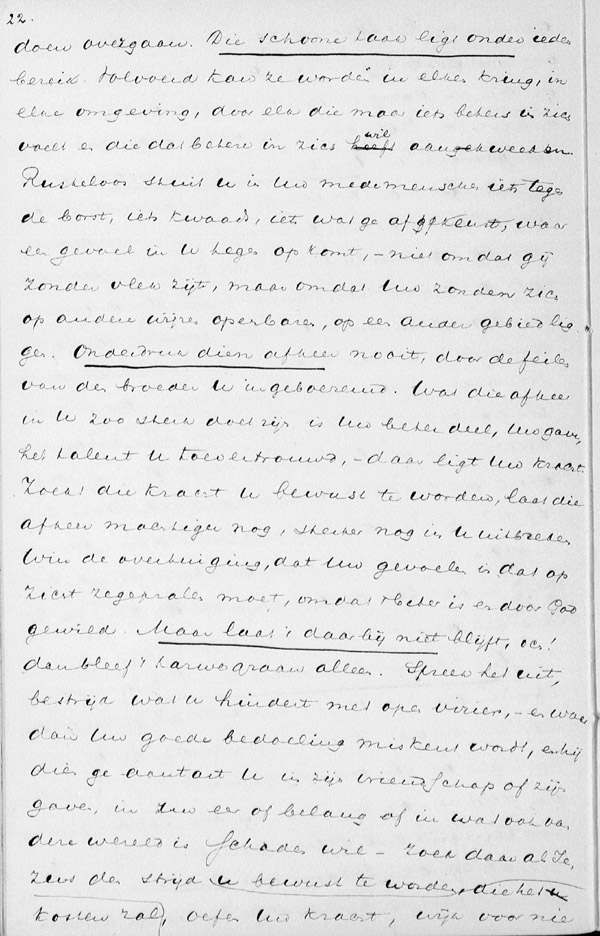 22.
doen overgaan. Die schoone taak ligt onder ieders
bereik. Volvoerd kan ze worden in elken kring, in
elke omgeving, door elk die maar iets beters in zich
voelt en die dat betere in zich heeft wil aangekweeken.
Rusteloos stuit u in Uw medemenschen iets tegen
de borst, iets kwaads, iets wat ge afkeurt, waar
een gevoel in U tegen op komt, - niet omdat gij
zonder vlek zijt, maar omdat Uw zonden zich
op andere wijze openbaren, op een ander gebied lig-
gen. Onderdruk dien afkeer nooit, door de feilen
van den broeder U ingeboezemd. Wat die afkeer
in U zoo sterk doet zijn is Uw beter deel, Uw gave,
het talent U toevertrouwd, - daar ligt Uw kracht.
Zoekt die kracht U bewust te worden, laat die
afkeer machtiger nog, sterker nog in U uitbreken
Win de overtuiging, dat Uw gevoel is dat op
zich zegepralen moet, omdat beter is en door God
gewild. Maar laat 't daarbij niet blijft, och!
dan bleef 't tarwegraan alleen. Spreek het uit,
bestrijd wat U hindert met open vizier, - en waar
dan Uw goede bedoeling miskend wordt, en hij
dien ge aantast U in zijn vriendschap of zijn
gaven, in Uw eer of belang of in wat ook van
deze wereld is schaden wil - zoek daar als Je-
zus den strijd u bewust te worden, die het u
kosten zal, oefen Uw kracht, wijk voor nie